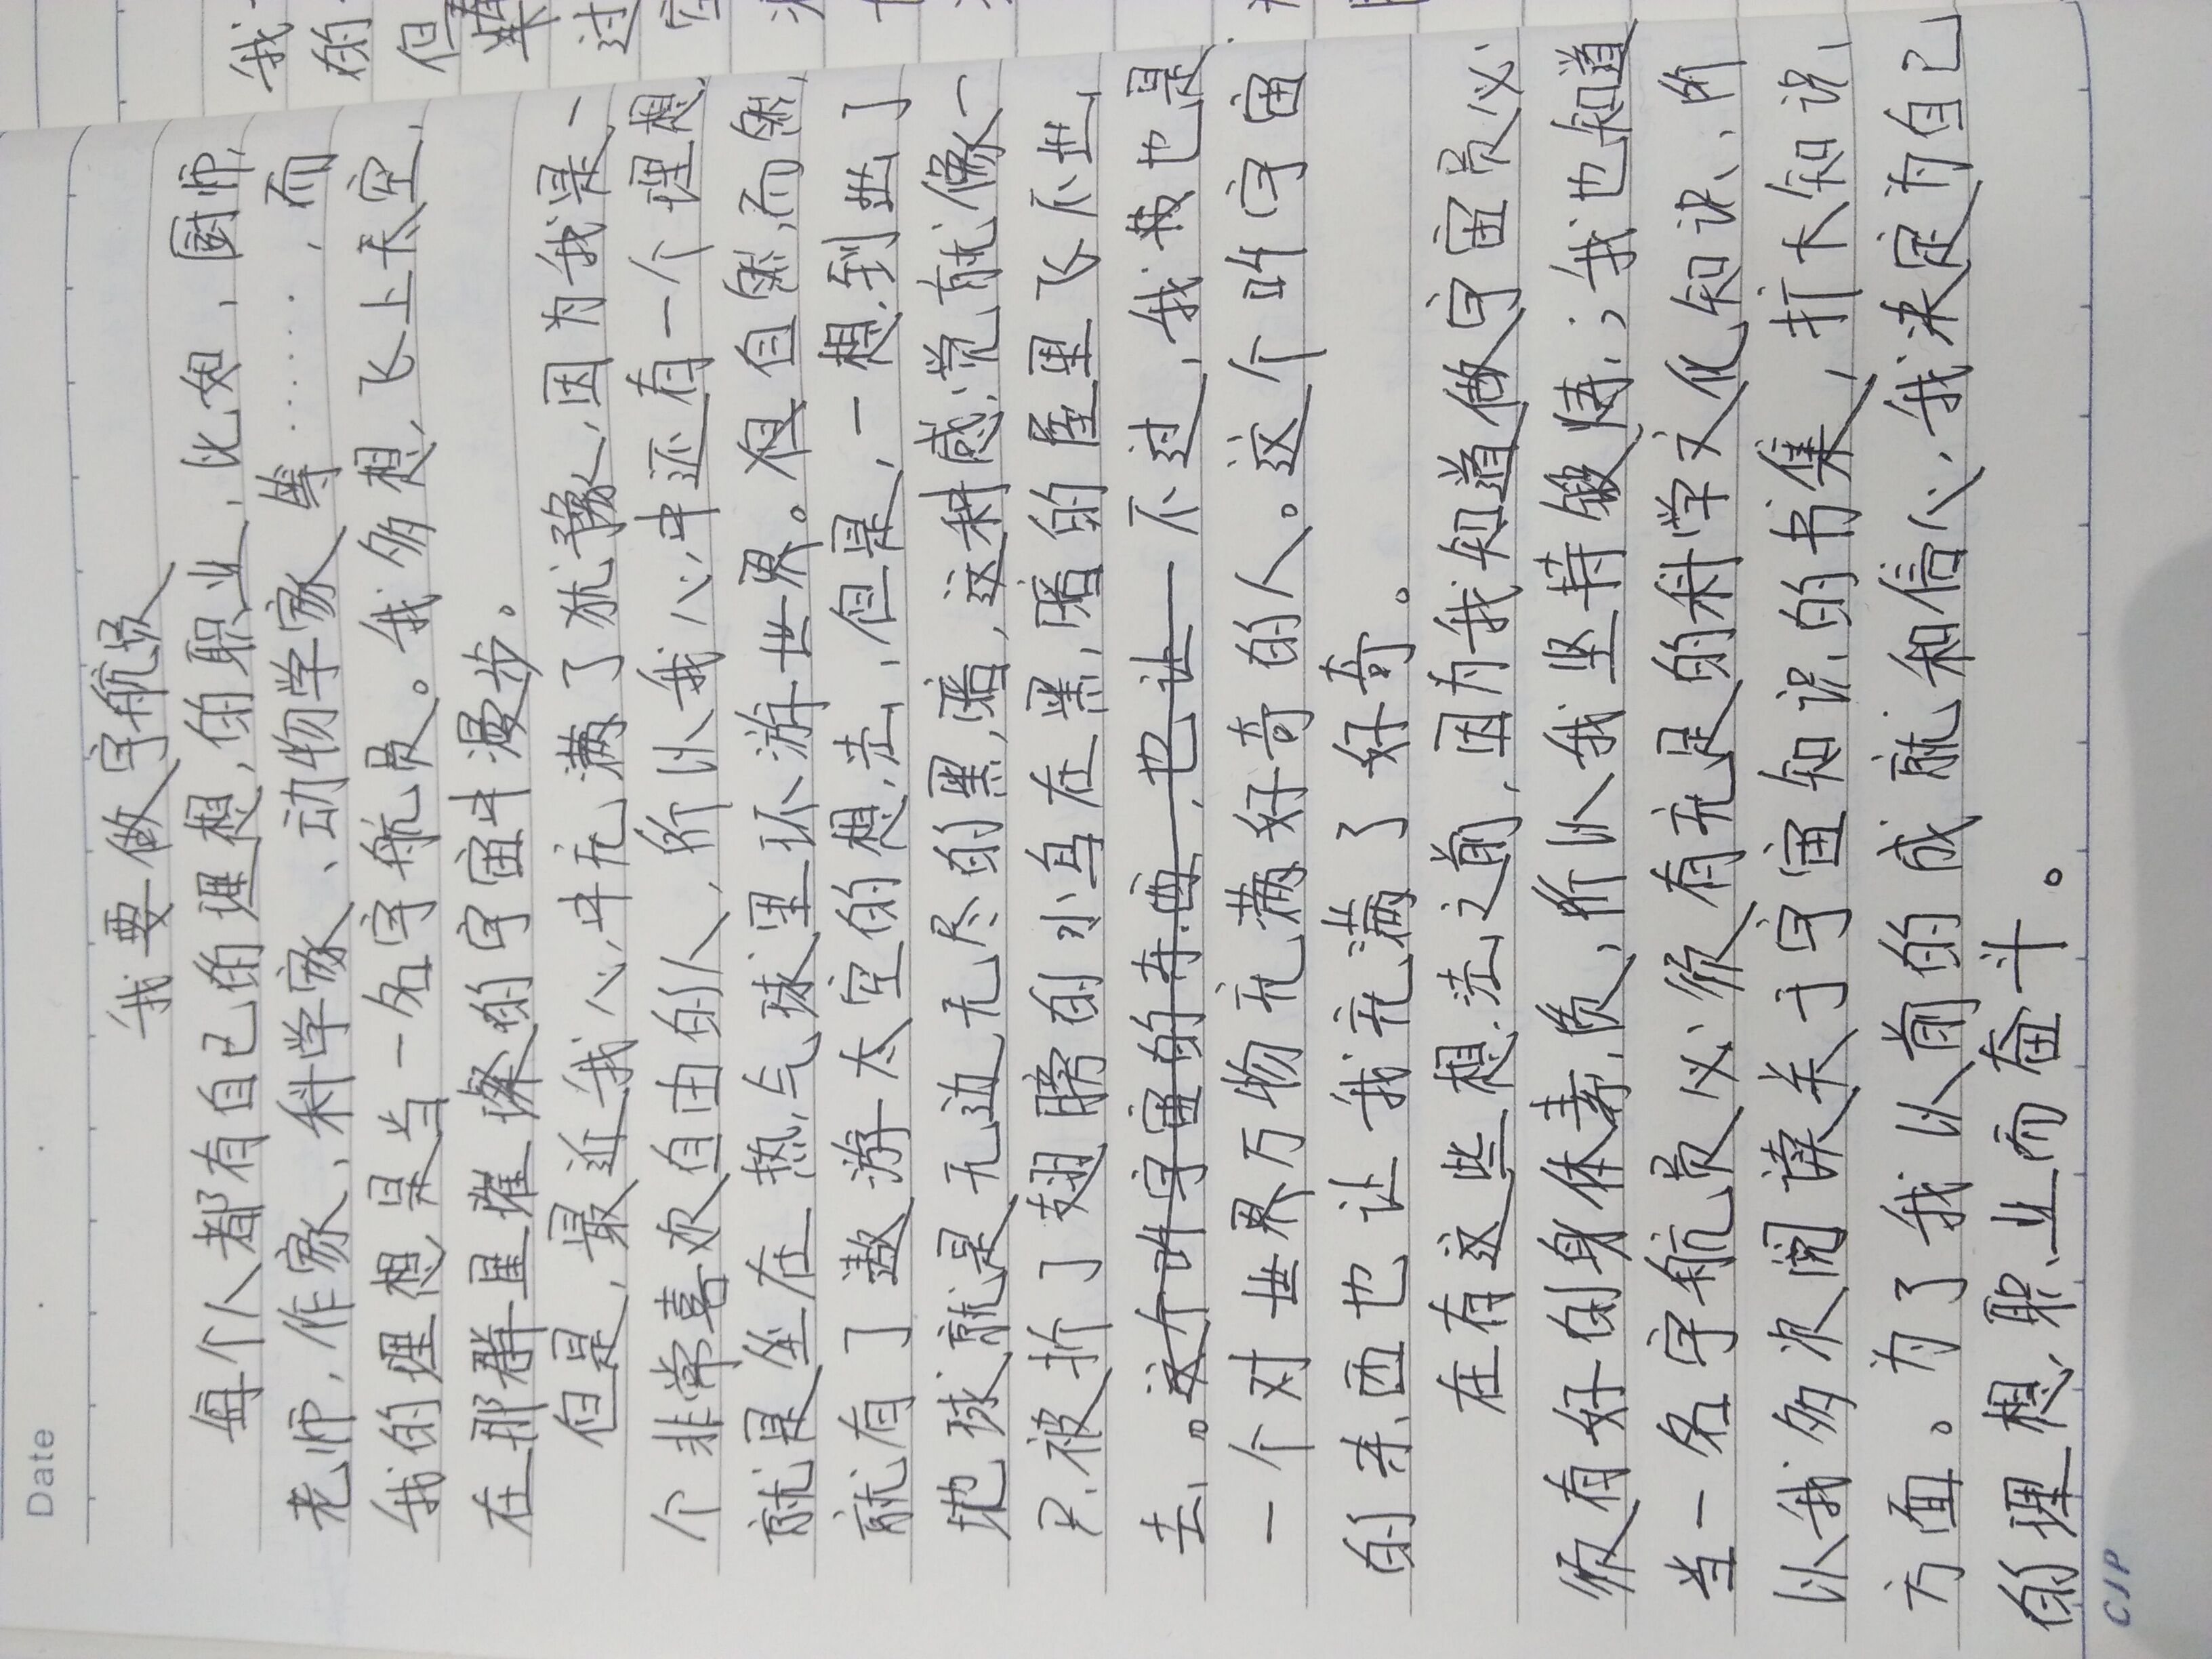 Date
我要做宇航员
每个人都有自己的理想,的职业,比如,厨师,
老师,作家、科学家、动物学家等……,而
我的理想是当一名宇航员。我多想,飞上天空,
在那群星璀璨的宇宙中漫步。
但是,最近我心中充满了犹豫,因为我是一
个非常喜欢自由的人,所以我心中还有一个理想,
就是坐在热气球里环游世界。但自然,而然,
就有了遨游太空的想法,但是,一想到出了
地球就是无边无尽的黑暗,这种感觉就像一
只被折了翅膀的小鸟在黑暗的屋里飞不出,
去,。这个叫宇宙的东西,也让一不过,我也是
一个对世界万物充满好奇的人。这个叫宇宙
的东西也让我充满了好奇。
在有这些想法之前,因为我知道做宇宙员必
须有好的身体素质,所以我坚持锻炼,;我也知道
当一名宇航员必须有充足的科学文化知识、所
以我多次阅读关于宇宙知识的书集,扩大知识
方面。为了我以前的成就和信心,我决定为自己
的理想,职业而奋斗。
CJP
我
的
但
过
空